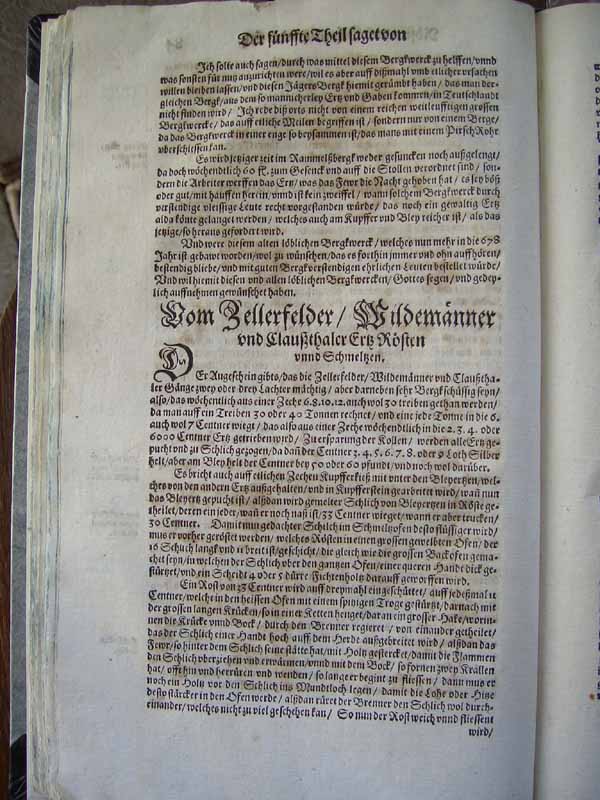 Der fünffte Theil saget von
Ich solte auch sagen/ durch was mittel diesem Bergkwerck zu helffen/ vnnd
was sonsten für nutz anzurichten were/ wil es aber auff dißmahl vmb etlicher vrsachen
willen bleiben lassen/ vnd diesen Jägers Bergk hiemit gerümbt haben/ das man der-
gleichen Bergk/ aus dem so mannicherley Ertz vnd Gaben kommen/ in Teutschlandt
nicht finden wird/ Ich rede diß orts nicht von einem reichen weitleufftigen grossen
Bergkwercke/ das auff etliche Meilen begriffen ist/ sondern nur von einem Berge/
da das Bergkwerck in einer enge so beysammen ist/ das mans mit einem Pirsch Rohr
vberschiessen kan.
Es wird jetziger zeit im Rammelßbergk weder gesuncken noch außgelengt/
da doch wöchendtlich 60 fl. zum Gesenck vnd auff die Stollen verordnet sind/ son-
dern die Arbeiter werffen das Ertz/ was das Fewr die Nacht gehoben hat/ es sey böß
oder gut/ mit hauffen herein/ vnnd ist kein zweiffel/ wann solchem Bergkwerck durch
verstendige vleissige Leute recht vorgestanden würde/ das noch ein gewaltig Ertz
alda könte gelanget werden/ welches auch am Kupffer vnd Bley reicher ist/ als das
jetzige/ so heraus gefordert wird.
Vnd were diesem alten löblichen Bergkwerck/ welches nun mehr in die 678
Jahr ist gebawt worden/ wol zu wünschen/ das es forthin jmmer vnd ohn auffhören/
bestendig bliebe/ vnd mit guten Bergkverstendigen ehrlichen Leuten bestellet würde/
Vnd wil hiemit diesen vnd allen löblichen Bergkwercken/ Gottes segen/ vnd gedey-
lich auffnehmen gewünschet haben.
Vom Zellerfelder/ Wildemänner
vnd Claußthaler Ertz Rösten
vnnd Schmeltzen.
DEr Augeschein gibts/ das die Zellerfelder/ Wildemänner vnd Claußtha-
ler Gänge zwey oder drey Lachter mächtig/ aber darneben sehr Bergkschüssig seyn/
also/ das wöchendtlich aus einer Zeche 6. 8. 10. 12. auch wol 30 treiben gethan werden/
da man auff ein Treiben 30 oder 40 Tonnen rechnet/ vnd eine jede Tonne in die 6.
auch wol 7 Centner wiegt/ das also aus einer Zeche wöchendtlich in die 2. 3. 4. oder
6000 Centner Ertz getrieben wird/ Zu ersparung der Kollen/ werden alle Ertz ge-
pucht vnd zu Schlich gezogen/ da dañ der Centner 3. 4. 5. 6. 7. 8. oder 9 Loth Silber
helt/ aber am Bley helt der Centner bey 50 oder 60 pfundt/ vnd noch wol darüber.
Es bricht auch auff etlichen Zechen Kupfferkieß mit vnter den Bleyertzen/ wel-
ches von den andern Ertz außgehalten/ vnd in Kupfferstein gearbeitet wird/ wañ nun
das Bleyertz gepucht ist/ alßdan wird gemelter Schlich von Bleyertzen in Röste ge-
theilet/ deren ein jeder/ wañ er noch naß ist/ 33 Centner wieget/ wann er aber trucken/
30 Centner. Damit nun gedachter Schlich im Schmeltzofen desto flüssiger wird/
mus er vorher geröstet werden/ welches Rösten in einen grossen gewelbten Ofen/ der
16 Schuch langk vnd 11 breit ist/ geschicht/ die gleich wie die grossen Backöfen gema-
chet seyn/ in welchen der Schlich vber den gantzen Ofen/ einer queren Handt dick ge-
stürtzet/ vnd ein Scheidt 4 oder 5 dürre Fichtenholtz darauff geworffen wird.
Ein Rost von 33 Centner wird auff dreymahl eingeschüttet/ auff jedeßmal 11
Centner/ welcher in den heissen Ofen mit einem spitzigen Troge gestürtzt/ darnach mit
der grossen langen Krücken/ so in einer Ketten henget/ daran ein grosser Hake/ worin-
nen die Krücke vnnd Bock/ durch den Brenner regieret/ von einander getheilet/
das der Schlich einer Handt hoch auff dem Herdt außgebreitet wird/ alßdan das
Fewr/ so hinter dem Schlich seine stätte hat/ mit Holtz gestercket/ damit die Flammen
den Schlich vberziehen vnd erwärmen/ vnnd mit dem Bock/ so fornen zwey Krallen
hat/ offt hin vnd herrüren vnd wenden/ so lang er beginet zu fliessen/ dann mus er
noch ein Holtz vor den Schlich ins Mundtloch legen/ damit die Lohe oder Hitze
desto stärcker in den Ofen werde/ alßdan rüret der Brenner den Schlich wol durch-
einander/ welches nicht zu viel geschehen kan/ So nun der Rost weich vnnd fliessent
wird/